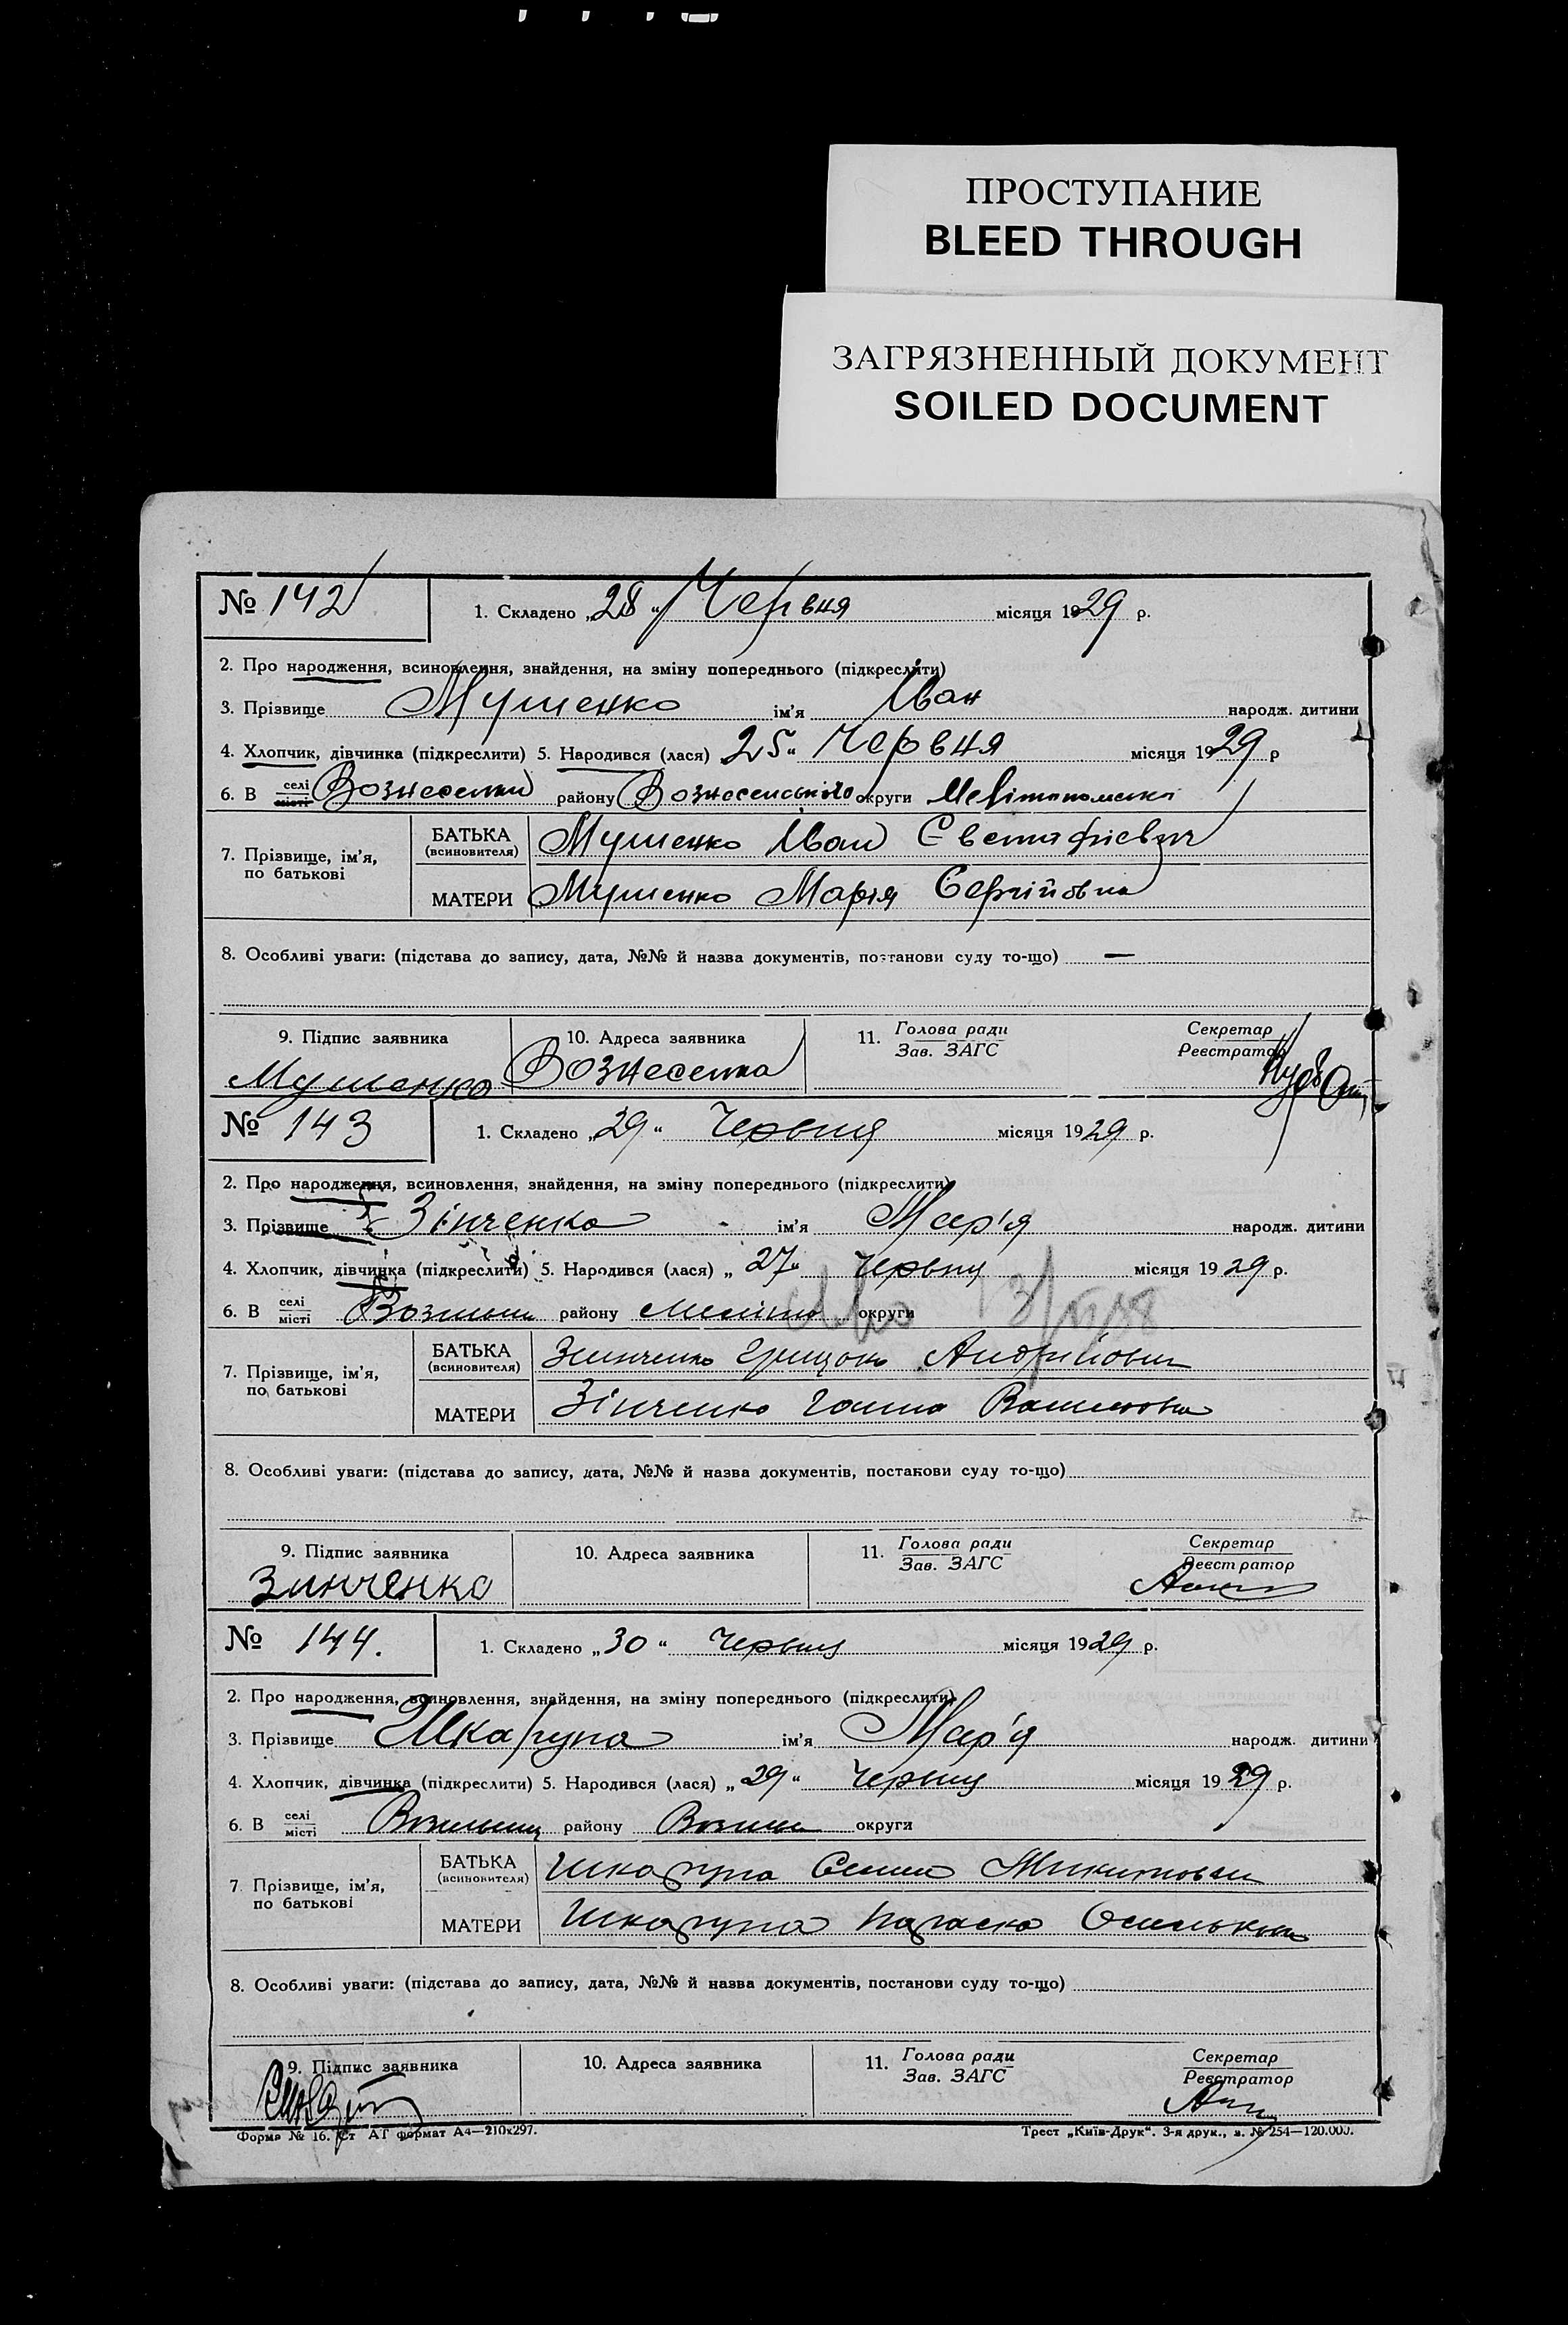 ПРОСТУПАНИЕ
BLEED THROUGH
ЗАГРЯЗНЕННЫЙ ДОКУМЕНТ
SOILED DOCUMENT
№ 142 1. Складено „28“ Червня місяця 1929 р.
2. Про народження, всиновлення, знайдення, на зміну попереднього (підкреслити)
3. Прізвище Мушенко ім'я Іван народж. дитини
4. Хлопчик, дівчинка (підкреслити) 5. Народився (лася) 25“ Червня місяця 1929 р
6. В селі місті Вознесенки району Вознесенського округи
7. Прізвище, ім'я, по батькові
БАТЬКА (всиновителя) Мушенко Іван
МАТЕРИ Мушенко Марія Сергійовна
8. Особливі уваги: (підстава до запису, дата, №№ й назва документів, постанови суду то-що) —
9. Підпис заявника 10. Адреса заявника 11. Голова ради Зав. ЗАГС Секретар Реєстратор
Мушенко Вознесенка
№ 143 1. Складено „29“ Червня місяця 1929 р.
2. Про народження, всиновлення, знайдення, на зміну попереднього (підкреслити)
3. Прізвище Зінченко ім'я Мар'я народж. дитини
4. Хлопчик, дівчинка (підкреслити) 5. Народився (лася) „27“ Червня місяця 1929 р.
6. В селі місті району округи
7. Прізвище, ім'я, по батькові
БАТЬКА (всиновителя) Зинченко Грицько Андрійович
МАТЕРИ Зінченко Ганна
8. Особливі уваги: (підстава до запису, дата, №№ й назва документів, постанови суду то-що)
9. Підпис заявника 10. Адреса заявника 11. Голова ради Зав. ЗАГС Секретар Реєстратор
Зинченко
№ 144. 1. Складено „30“ Червня місяця 1929 р.
2. Про народження, всиновлення, знайдення, на зміну попереднього (підкреслити)
3. Прізвище Шкарупа ім'я Мар'я народж. дитини
4. Хлопчик, дівчинка (підкреслити) 5. Народився (лася) „29“ Червня місяця 1929 р.
6. В селі місті району округи
7. Прізвище, ім'я, по батькові
БАТЬКА (всиновителя) Шкарупа Микитович
МАТЕРИ Шкарупа Параска
8. Особливі уваги: (підстава до запису, дата, №№ й назва документів, постанови суду то-що)
9. Підпис заявника 10. Адреса заявника 11. Голова ради Зав. ЗАГС Секретар Реєстратор
Форма № 16. Ст АГ формат А4—210х297. Трест „Київ-Друк“. 3-я друк., з. № 254—120.000.